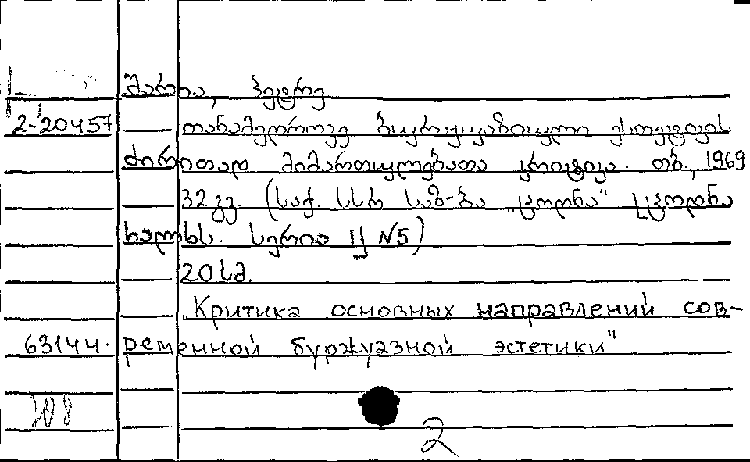 შარია, პეტრე
2-20457 თანამედროვე ბურჟუაზიული ესთეტიკის
ძირითად მიმართულებათა კრიტიკა. თბ., 1969
32 გვ. (საქ. სსრ საზ-ბა „ცოდნა" ცოდნა
ხალხს. სერია II N5)
20 სმ.
„Критика основных направлений сов-
63144. ременной буржуазной эстетики"
2